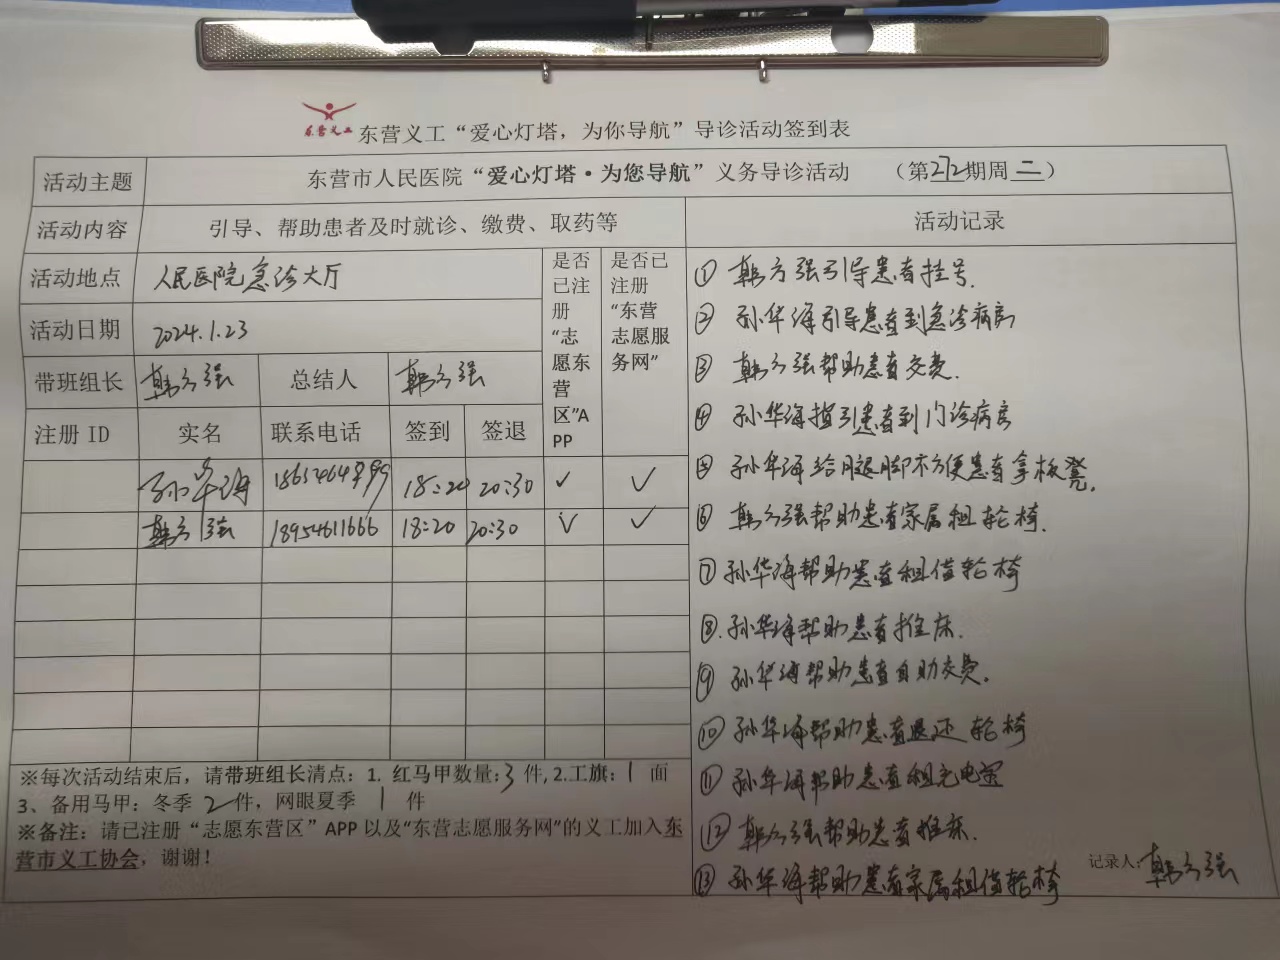 东营义工
东营义工“爱心灯塔，为你导航”导诊活动签到表
活动主题
东营市人民医院“爱心灯塔·为您导航”义务导诊活动 （第272期周二）
活动内容
引导、帮助患者及时就诊、缴费、取药等
活动记录
活动地点
人民医院急诊大厅
是否已注册“志愿东营区”APP
是否已注册“东营志愿服务网”
活动日期
2024.1.23
带班组长
韩方强
总结人
韩方强
注册 ID
实名
联系电话
签到
签退
孙华海
18:20
20:30
✓
✓
韩方强
18954611666
18:20
20:30
✓
✓
※每次活动结束后，请带班组长清点：1. 红马甲数量：3 件，2.工旗：1 面
3、备用马甲：冬季 2 件，网眼夏季 1 件
※备注：请已注册“志愿东营区”APP 以及“东营志愿服务网”的义工加入东
营市义工协会，谢谢！
① 韩方强引导患者挂号
② 孙华海引导患者到急诊病房
③ 韩方强帮助患者交费.
④ 孙华海指引患者到门诊病房
⑤ 孙华海给腿脚不方便患者拿板凳.
⑥ 韩方强帮助患者家属租轮椅.
⑦ 孙华海帮助患者租借轮椅
⑧. 孙华海帮助患者推床.
⑨ 孙华海帮助患者自助交费.
⑩ 孙华海帮助患者退还轮椅
⑪ 孙华海帮助患者租充电宝
⑫ 韩方强帮助患者推床.
⑬ 孙华海帮助患者家属租借轮椅
记录人：韩方强